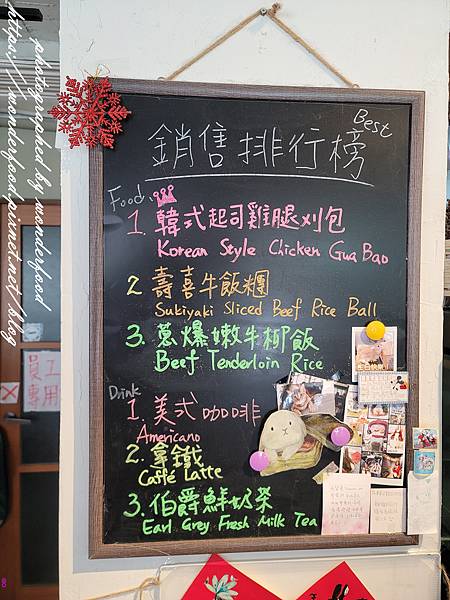 photographed by wonderfood
https://wonderfood.pixnet.net/blog
Best
銷售排行榜
Food.
1. 韓式起司雞腿刈包
Korean Style Chicken Gua Bao
2. 壽喜牛飯糰
Sukiyaki Sliced Beef Rice Ball
3. 蔥爆嫩牛柳飯
Beef Tenderloin Rice
Drink
1. 美式咖啡
Americano
2. 拿鐵
Caffé Latte
3. 伯爵鮮奶茶
Earl Grey Fresh Milk Tea
員工
專用